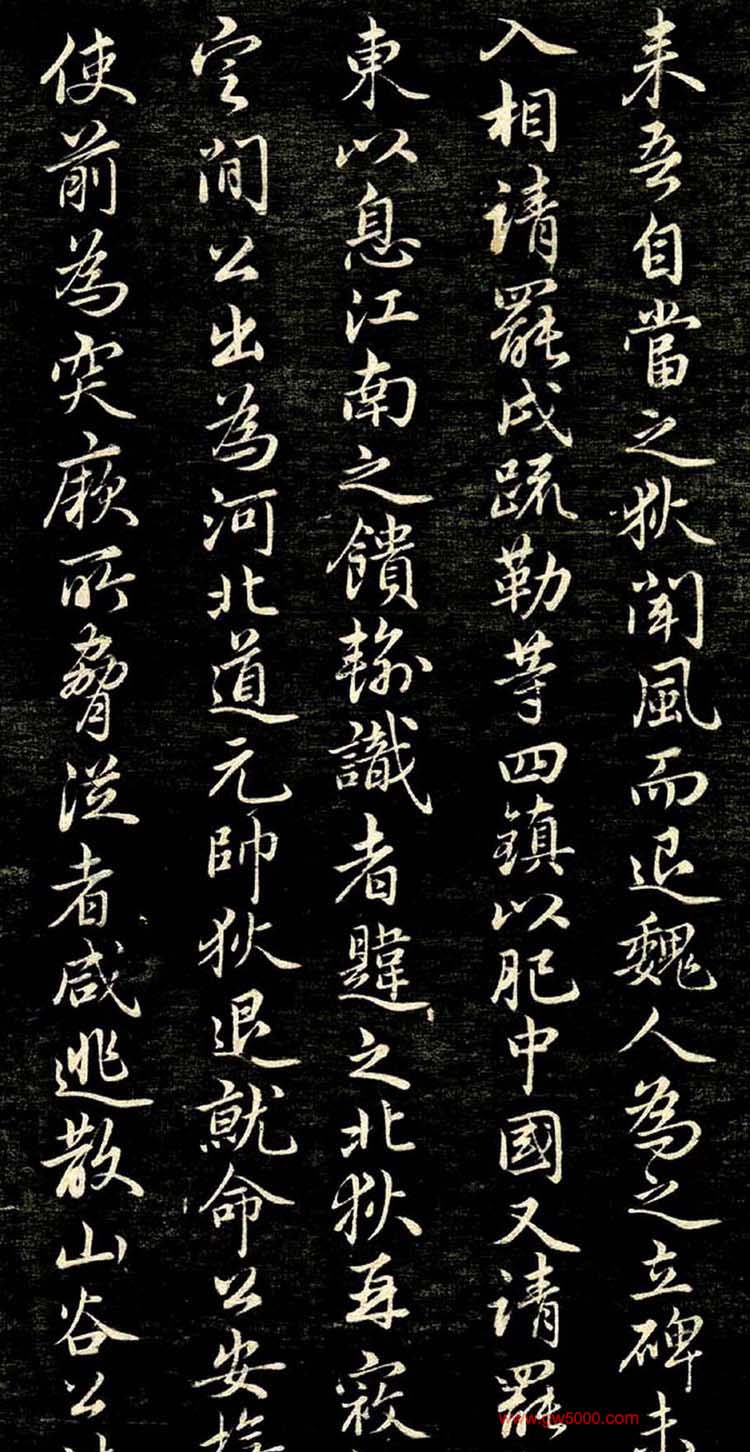 来吾自當之狄聞風而退魏人為之立碑未
入相請罷戍疏勒等四鎮以肥中國又請罷
東以息江南之饋輸識者韙之北狄再寇
定間公出為河北道元帥狄退就命公安撫
使前為突厥所脅從者咸逃散山谷公
www.gw5000.com